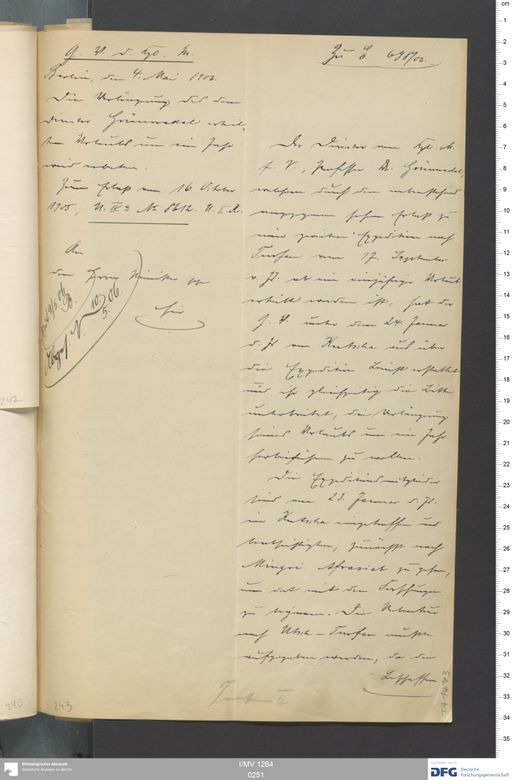 G. V. d. Kgl. M.
Zu E. 698/06.
Berlin, den 4. Mai 1906.
Die Verlängerung des dem
Director Grünwedel ertheil-
ten Urlaubs um ein Jahr
wird erbeten.
Zum Erlaß vom 16. October
1905, U. IV a No 8612. U. I. K.
An
den Herrn Minister pp
hier
10/5.06
Der Director am Kgl. M.
f. V., Professor Dr. Grünwedel,
welchem durch den nebenstehend
angezogenen hohen Erlaß zu
einer zweiten Expedition nach
Turfan vom 17. September
v. Js. ab ein einjähriger Urlaub
ertheilt worden ist, hat der
G. V. unter dem 24. Januar
d. Js. von Kutscha aus über
die Expedition Bericht erstattet
und ihr gleichzeitig die Bitte
unterbreitet, die Verlängerung
seines Urlaubs um ein Jahr
herbeiführen zu wollen.
Die Expeditionsmitglieder
sind am 23. Januar d. Js.
in Kutscha eingetroffen und
beabsichtigten, zunächst nach
Mingoi Afrasiab zu gehen,
um dort mit den Forschungen
zu beginnen. Die
nach Utsch-Turfan mußte
aufgegeben werden, da die
Turfan II
240
242
243
Ethnologisches Museum
Staatliche Museen zu Berlin
I/MV 1264
0251
DFG
Deutsche
Forschungsgemeinschaft